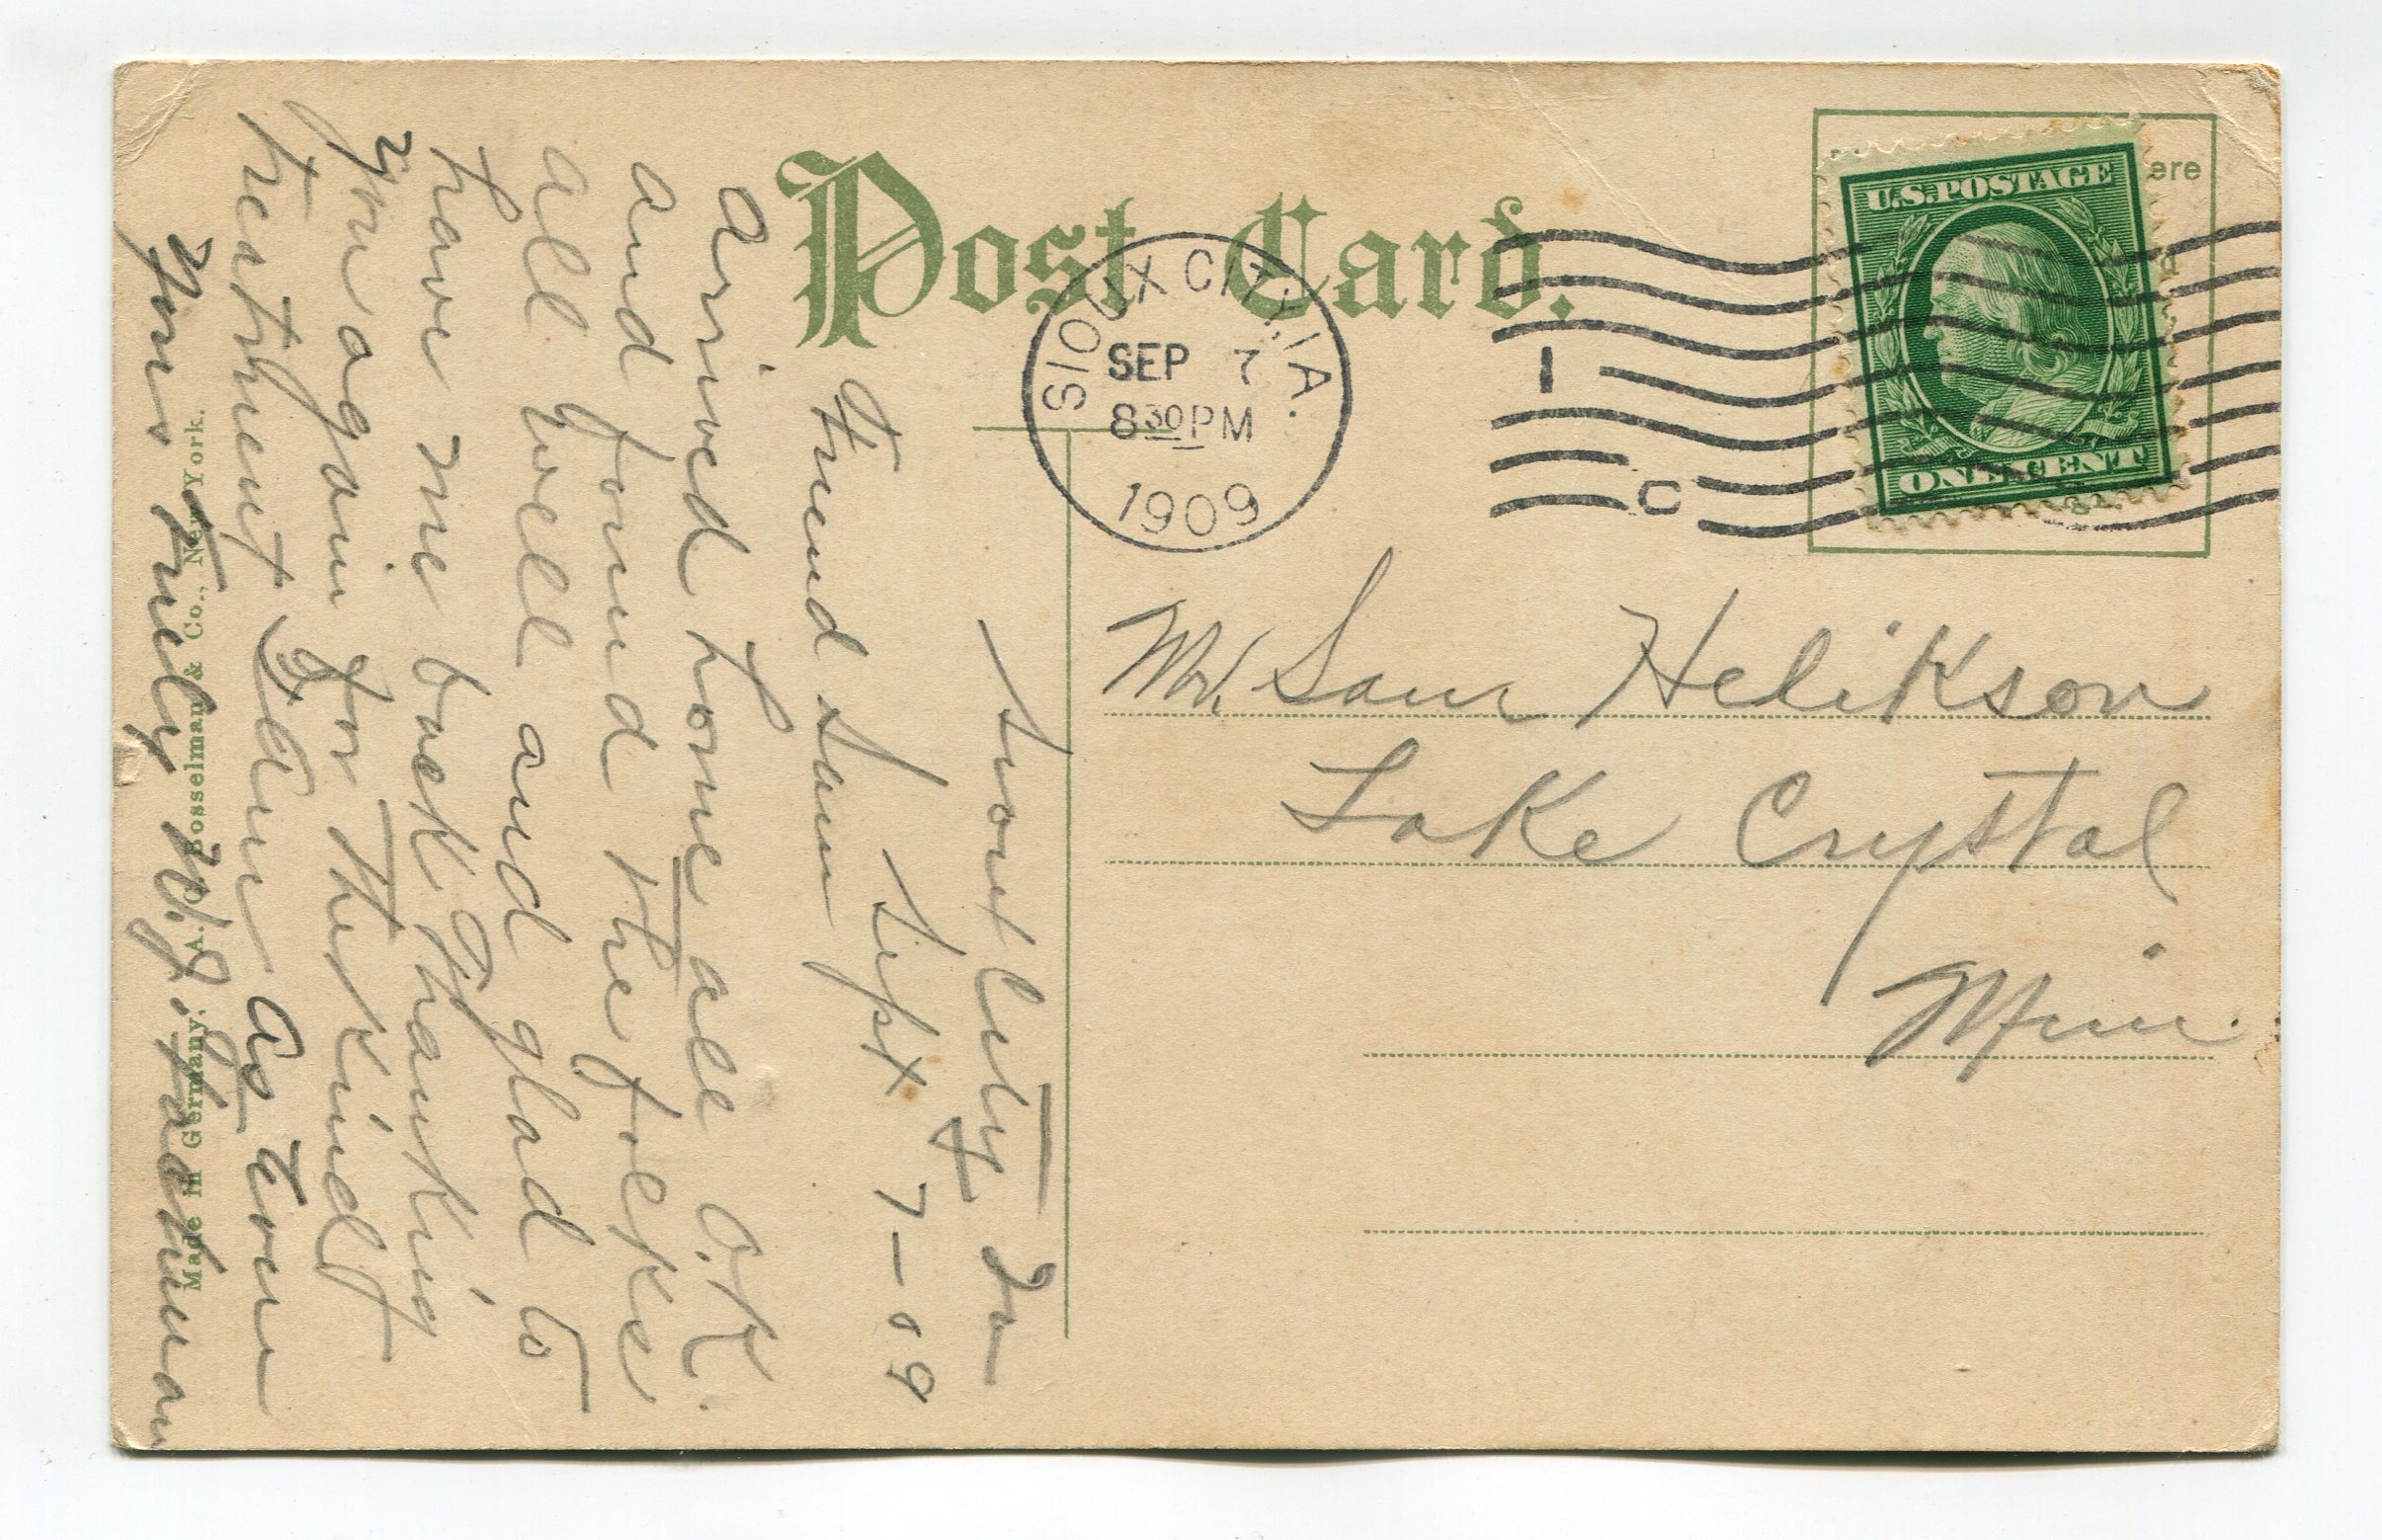 Post Card.
U.S. POSTAGE
ONE CENT
ere
SIOUX CITY, IA.
SEP 7
8 30 PM
1909
1
C
Mr. Sam Helikson
Lake Crystal,
Minn.
Sioux City Ia
Sept 7-09
Friend Sam
Arrived home all O.K.
and found the folks
all well and glad to
have me back Thanking
you again for the kind
treatment I
as ever
Yours Truly W.J.
Made in Germany. A. C. Bosselman & Co., New York.